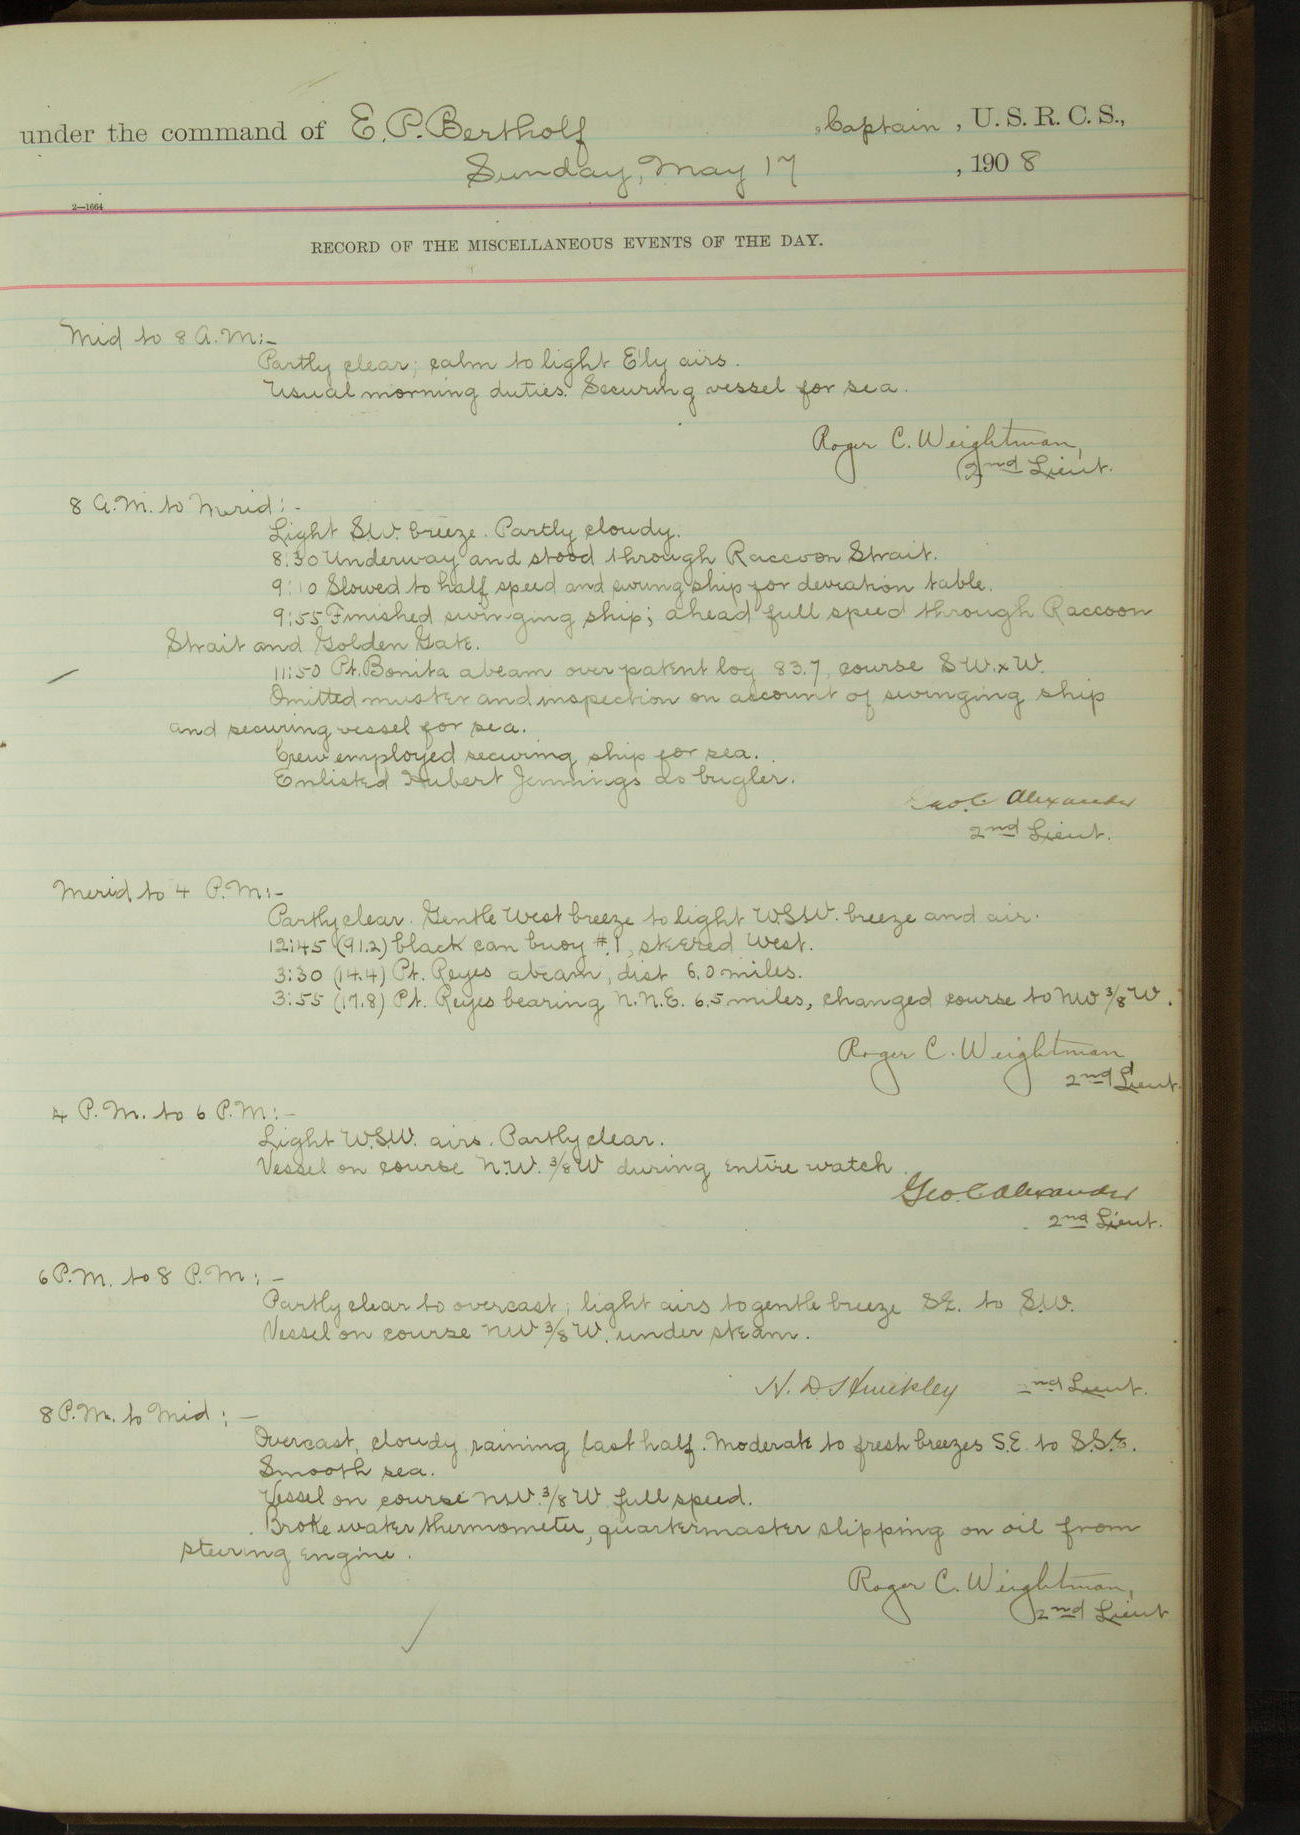 under the command of E. P. Bertholf, Captain, U. S. R. C. S.,
Sunday, May 17, 1908
2—1664
RECORD OF THE MISCELLANEOUS EVENTS OF THE DAY.
Mid to 8 A.M:-
Partly clear; calm to light E'ly airs.
Usual morning duties. Securing vessel for sea.
Roger C. Weightman,
2nd Lieut.
8 A.M. to Merid:-
Light S.W. breeze. Partly cloudy.
8:30 Underway and stood through Raccoon Strait.
9:10 Slowed to half speed and swung ship for deviation table.
9:55 Finished swinging ship; ahead full speed through Raccoon
Strait and Golden Gate.
11:50 Pt. Bonita abeam over patent log 83.7, course SW.xW.
Omitted muster and inspection on account of swinging ship
and securing vessel for sea.
Crew employed securing ship for sea.
Enlisted Hubert Jennings as bugler.
Geo. C Alexander
2nd Lieut.
Merid to 4 P.M:-
Partly clear. Gentle West breeze to light W.S.W. breeze and air.
12:45 (91.2) black can buoy #1, steered West.
3:30 (14.4) Pt. Reyes abeam, dist 6.0 miles.
3:55 (17.8) Pt. Reyes bearing N.N.E. 6.5 miles, changed course to NW 3/8 W.
Roger C. Weightman,
2nd Lieut.
4 P.M. to 6 P.M:-
Light W.S.W. airs. Partly clear.
Vessel on course N.W. 3/8 W during entire watch.
Geo. C Alexander
2nd Lieut.
6 P.M. to 8 P.M:-
Partly clear to overcast; light airs to gentle breeze SE. to S.W.
Vessel on course NW 3/8 W. under steam.
N. D. Hinckley 2nd Lieut.
8 P.M. to Mid:-
Overcast, cloudy, raining last half. Moderate to fresh breezes S.E. to S.S.E.
Smooth sea.
Vessel on course NW. 3/8 W full speed.
Broke water thermometer, quartermaster slipping on oil from
steering engine.
Roger C. Weightman,
2nd Lieut